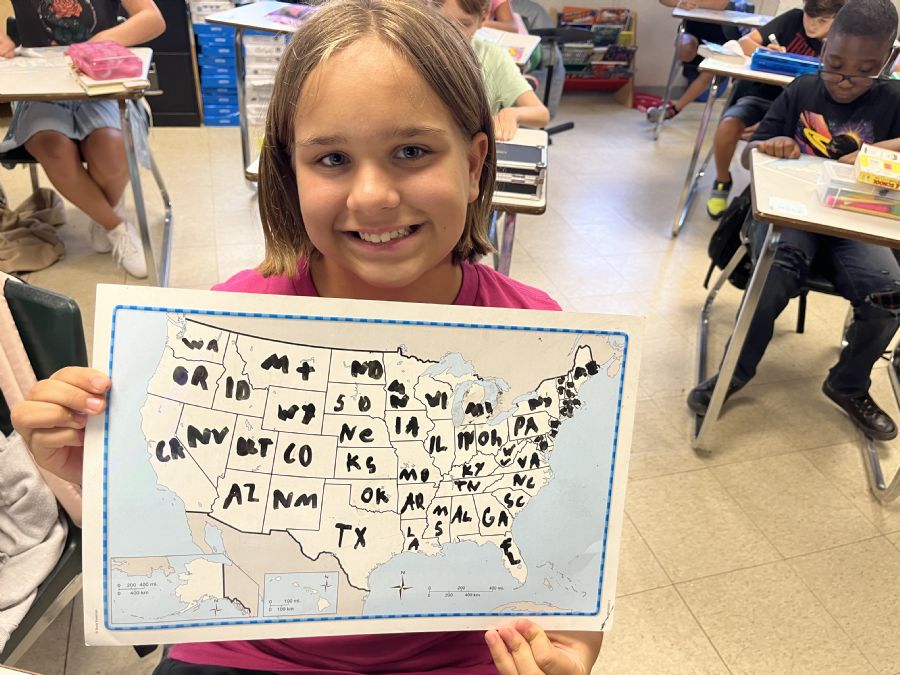 WA
M t
ND
OR
ID
M
N
VI
MI
NY
WY
S D
IA
PA
CA
NV
UT
CO
Ne
IL
IN
Oh
W
V
VA
KS
MO
KY
NC
AZ
NM
OK
AR
TN
SC
TX
L
A
M
S
AL
GA
F
L
0 200 400 mi.
0 400 km
N
0 100 mi.
0 100 km
N
0 200 400 mi.
0 200 400 km